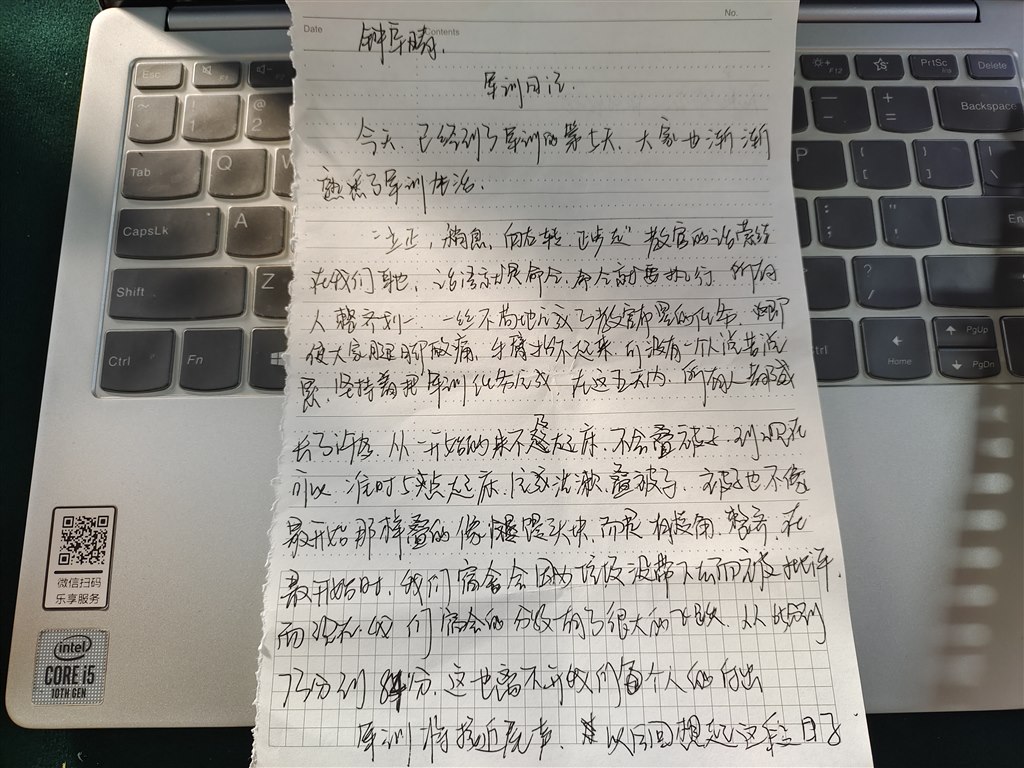 No.
Date
Contents
军训日记.
今天.已经到了军训的第五天.大家也渐渐
熟悉了军训生活.
"立正,稍息,向右转.正步走"教官的话萦绕
在我们耳边,话语就是命令,命令就要执行.所有
人整齐划一.一丝不苟地完成了教官布置的任务.即
使大家腿脚酸痛,手臂抬不起来.可没有一个人说苦说
累.坚持着把军训任务完成.在这五天内.所有人都成
长了许多.从一开始的来不及起床.不会叠被子.到现在
可以准时5点起床.洗漱.叠被子.被子也不像
最开始那样叠的像馒头块.而是有棱角.整齐.在
最开始时.我们宿舍会因为垃圾没带下去而被批评.
而现在.我们宿舍的分数有了很大的
73分到84分.这也离不开我们每个人的付出
军训将接近尾声.以后回想起这段日子
Esc
F1
F2
F12
PrtSc
Delete
~
!
1
@
2
Backspace
Tab
Q
W
P
{
[
}
]
|
\
CapsLk
A
Shift
Z
?
/
Ctrl
Fn
Ctrl
Home
PgUp
PgDn
End
微信扫码
乐享服务
intel
CORE i5
10TH GEN